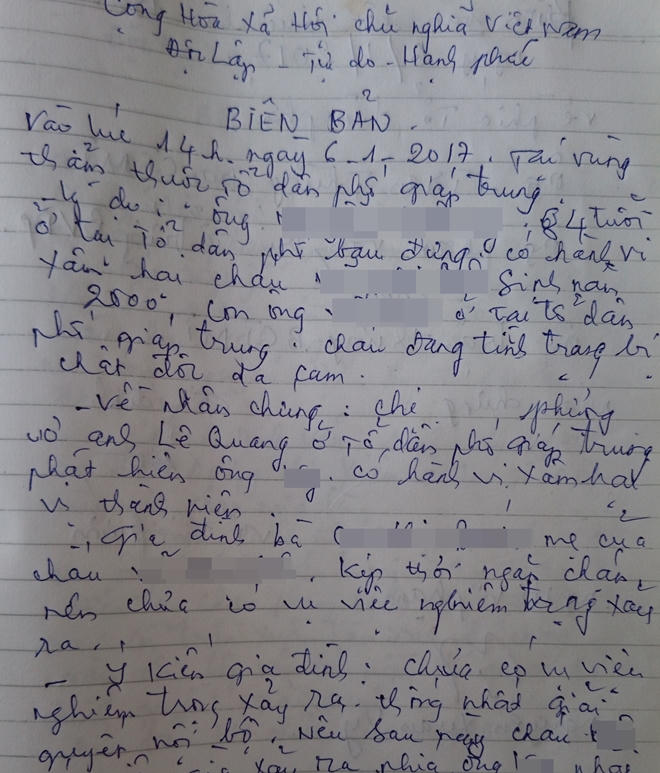 Cộng Hòa Xã Hội chủ nghĩa Việt Nam
Độc Lập - Tự do - Hạnh phúc
BIÊN BẢN.
Vào lúc 14h. ngày 6-1-2017. Tại vùng
thẩm thuộc tổ dân phố giáp trung.
- Lý do: ông 84 tuổi
ở tại Tổ dân phố Bàu đưng có hành vi
xâm hại cháu Sinh năm
2000, con ông ở tại tổ dân
phố giáp trung. cháu đang tình trạng bị
chất độc da cam.
- Về nhân chứng: chị phụng
vợ anh Lê Quang ở Tổ dân phố giáp trung
phát hiện ông có hành vi xâm hại
vị thành niên.
- Gia đình bà mẹ của
cháu kịp thời ngăn chặn,
nên chưa có vụ việc nghiêm trọng xảy
ra.
- Ý kiến gia đình: chưa có vụ viêc
nghiêm trọng xảy ra. thống nhất giải
quyết nội bộ. Nếu sau này cháu
xảy ra phía ông phải